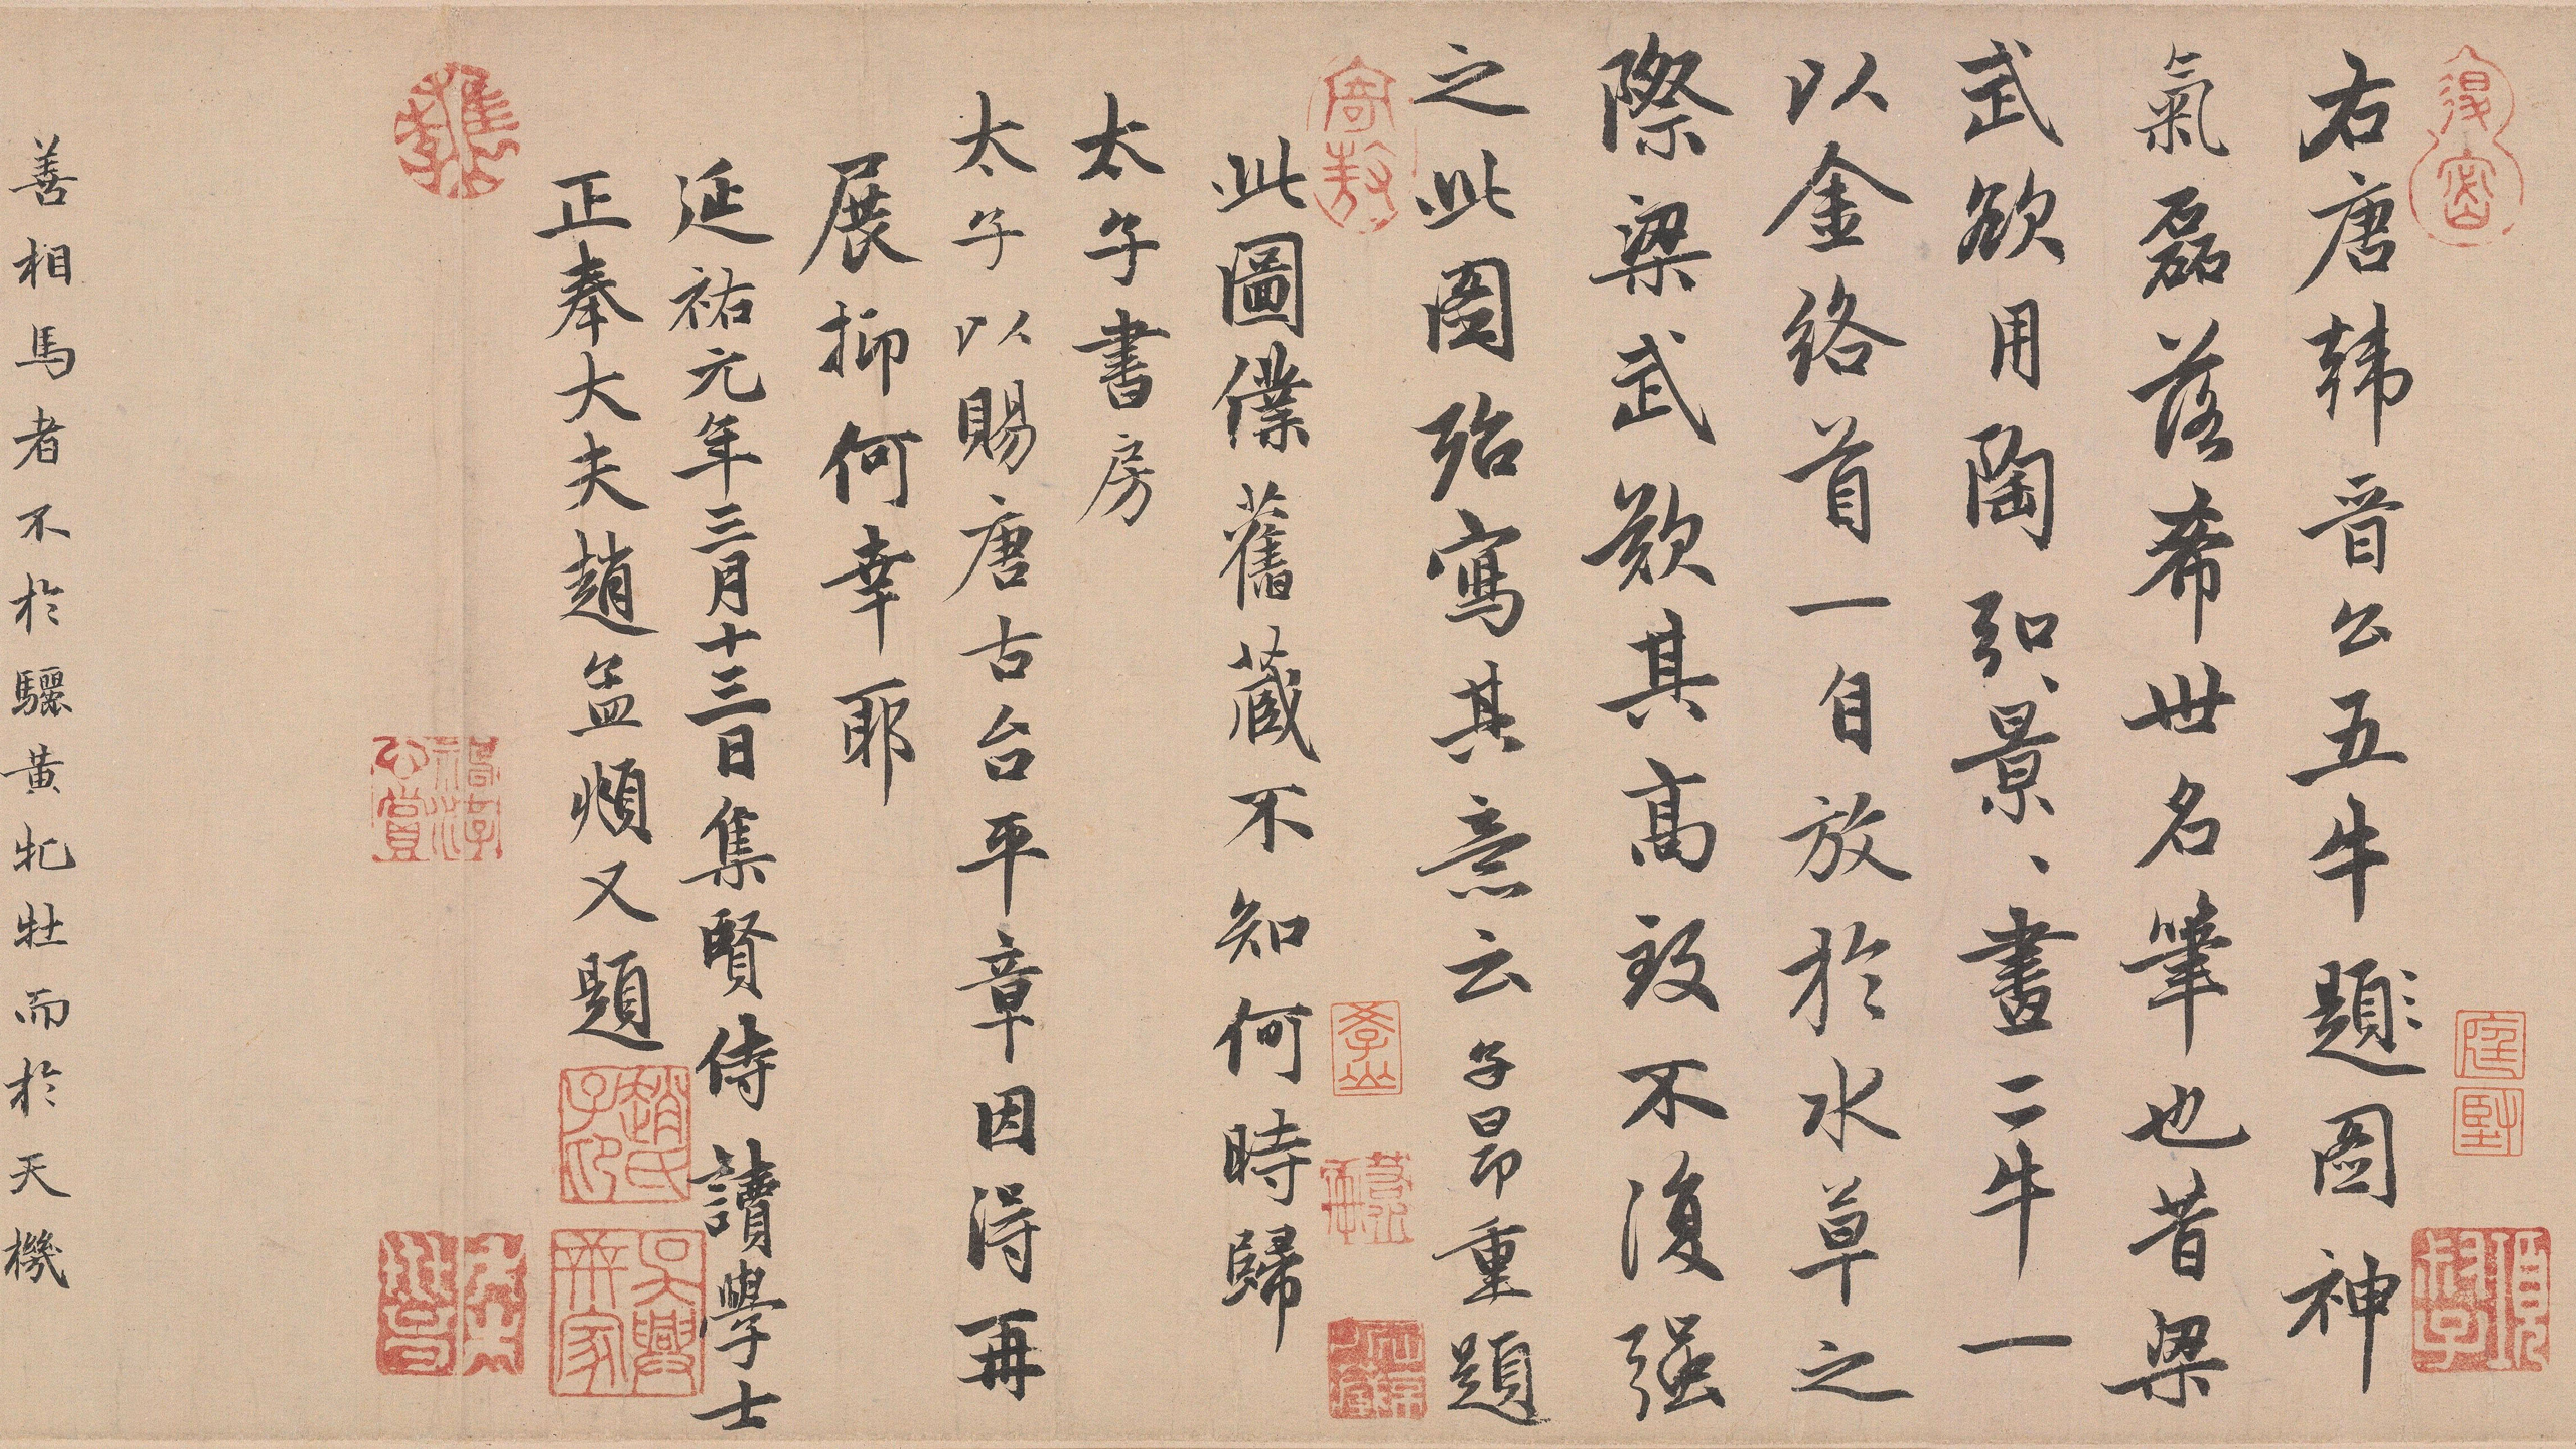 右唐韩晋公五牛題圖神
氣磊落希世名筆也昔梁
武欲用陶弘景、畫二牛一
以金络首一自放於水草之
際梁武歎其高致不復强
之此圖殆寫其意云子昂重題
此圖僕舊藏不知何時歸
太子書房
太子以賜唐古台平章因得再
展抑何幸耶
延祐元年三月十三日集賢侍讀學士
正奉大夫趙孟頫又題
善相馬者不於驪黃牝牡而於天機
趙氏子印
吳興